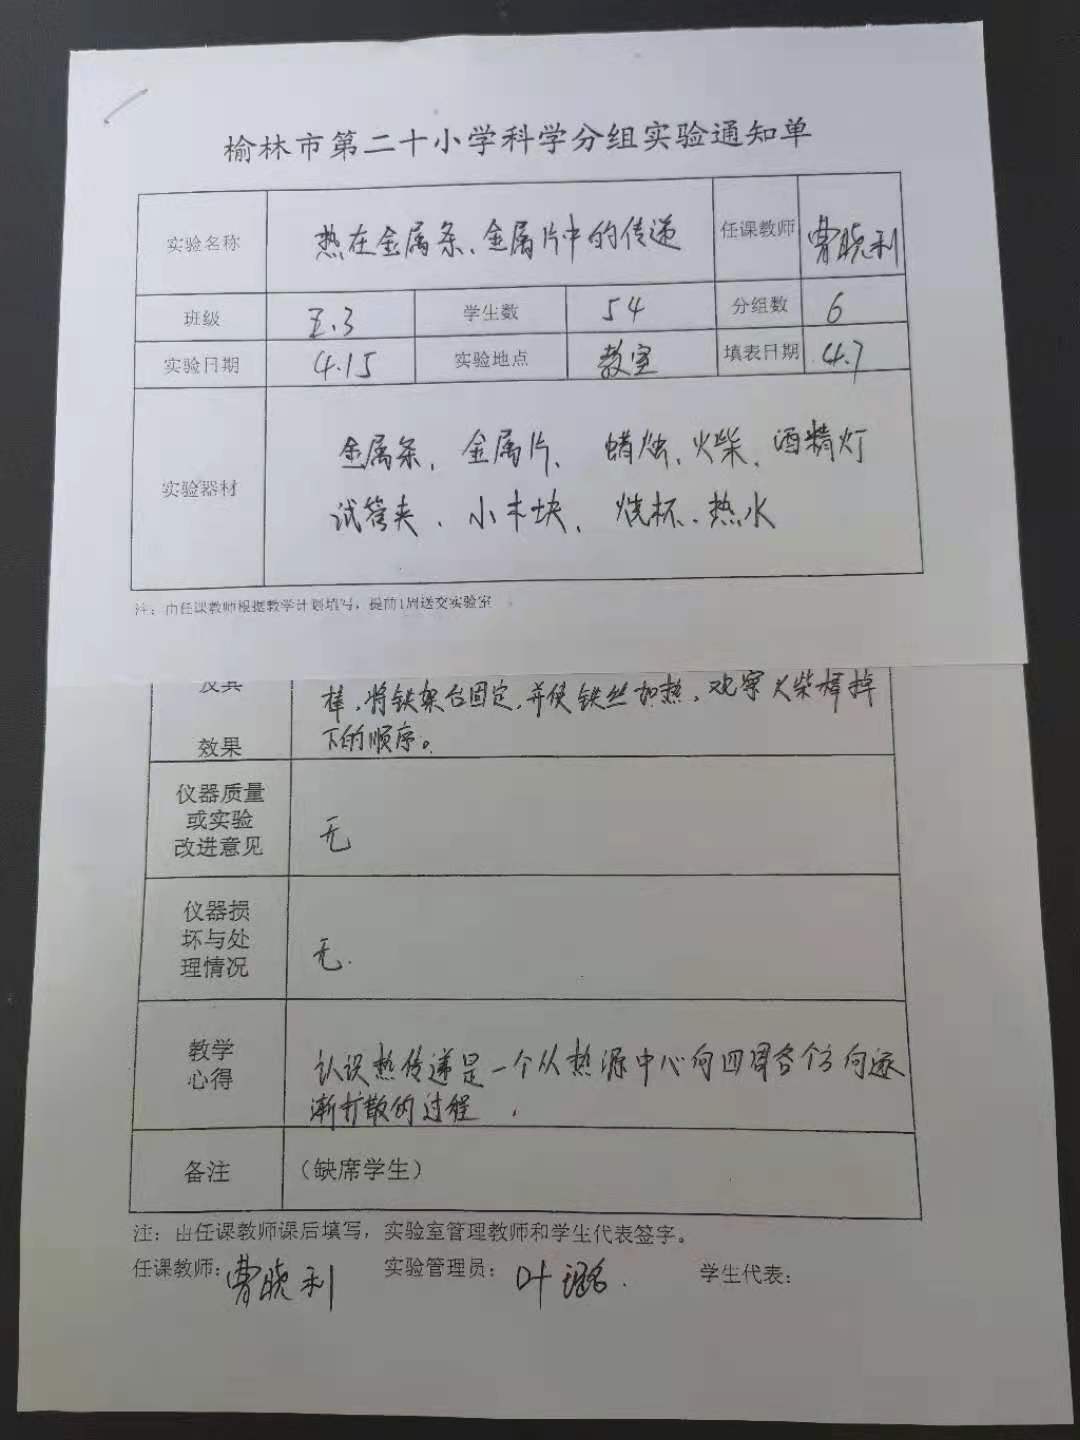 榆林市第二十小学科学分组实验通知单
实验名称 热在金属条、金属片中的传递 任课教师 曹晓利
班级 五.3 学生数 54 分组数 6
实验日期 4.15 实验地点 教室 填表日期 4.7
实验器材
金属条、金属片、蜡烛、火柴、酒精灯
试管夹、小木块、烧杯、热水
注：由任课教师根据教学计划填写，提前1周送交实验室
及其
效果
棒，将铁架台固定，并使铁丝加热，观察火柴棒掉
下的顺序。
仪器质量
或实验
改进意见
无
仪器损
坏与处
理情况
无.
教学
心得
认识热传递是一个从热源中心向四周各个方向逐
渐扩散的过程.
备注 （缺席学生）
注：由任课教师课后填写，实验室管理教师和学生代表签字。
任课教师：曹晓利 实验管理员：叶璐. 学生代表：